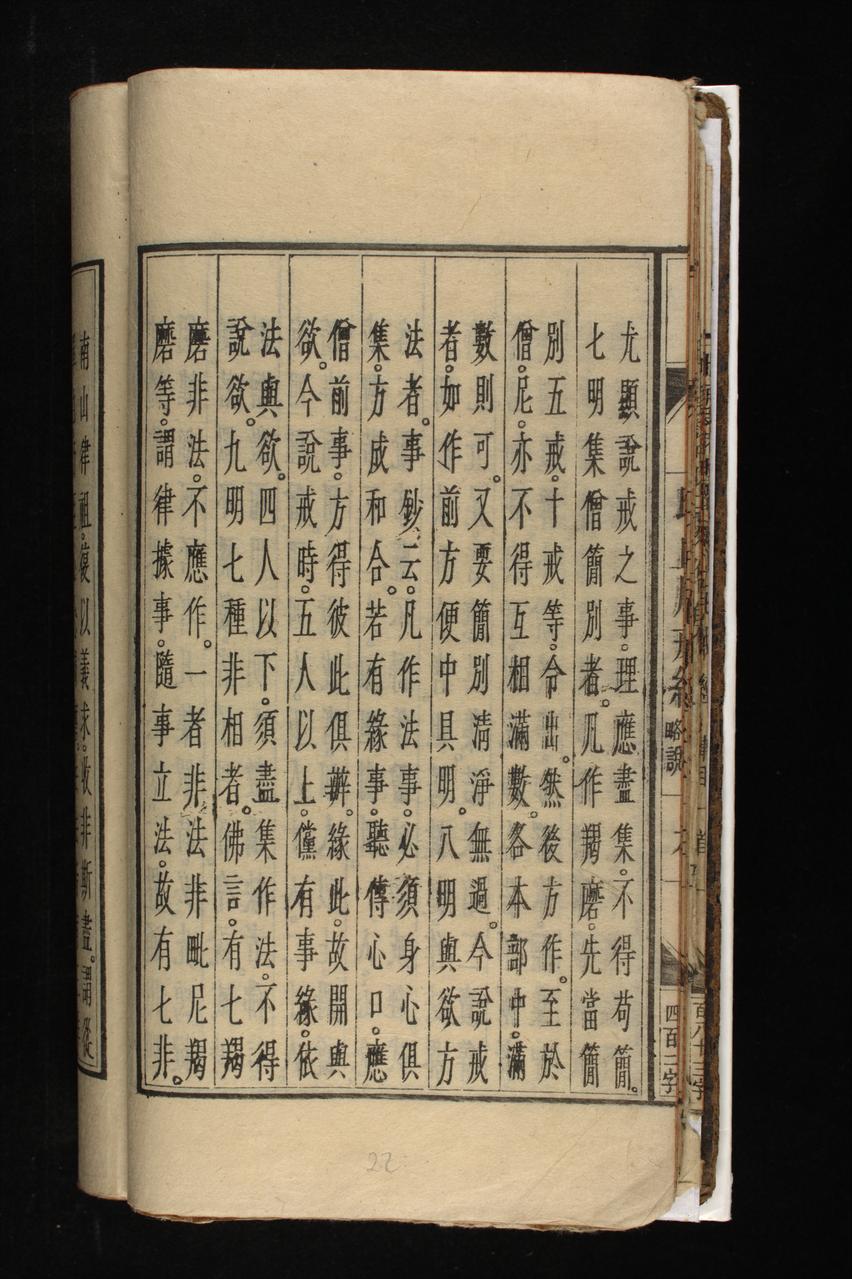 尤顯說戒之事。理應盡集。不得苟簡。
七明集僧簡別者。凡作羯磨。先當簡
別五戒。十戒等。令出。然後方作。至於
僧。尼。亦不得互相滿數。各本部中。滿
數則可。又要簡別清淨無過。今說戒
者。如作前方便中具明。八明與欲方
法者。事鈔云。凡作法事。必須身心俱
集。方成和合。若有緣事。聽傳心口。應
僧前事。方得彼此俱辦。緣此。故開與
欲。今說戒時。五人以上。儻有事緣。依
法與欲。四人以下。須盡集作法。不得
說欲。九明七種非相者。佛言。有七羯
磨非法。不應作。一者非法非毗尼羯
磨等。謂律據事。隨事立法。故有七非。
略說
四百二字
南山律祖。復以義求。收非斯盡。謂從